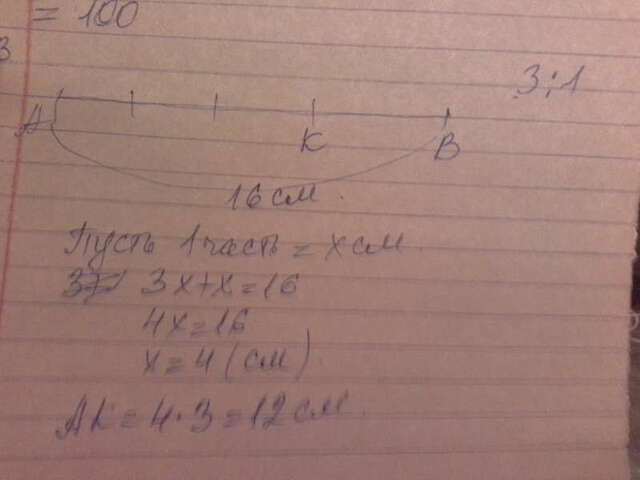 = 100
3
3:1
A K B
16 см.
Пусть 1 часть = x см.
3x+x=16
4x=16
x=4 (см)
AK=4·3=12 см.